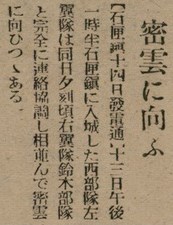 密雲に向ふ
【石匣鎮十四日發電通】十三日午後
一時半石匣鎮に入城した西部隊左
翼隊は同日夕刻頃石翼隊鈴木部隊
と完全に連絡協調し相並んで密雲
に向ひつゝある。